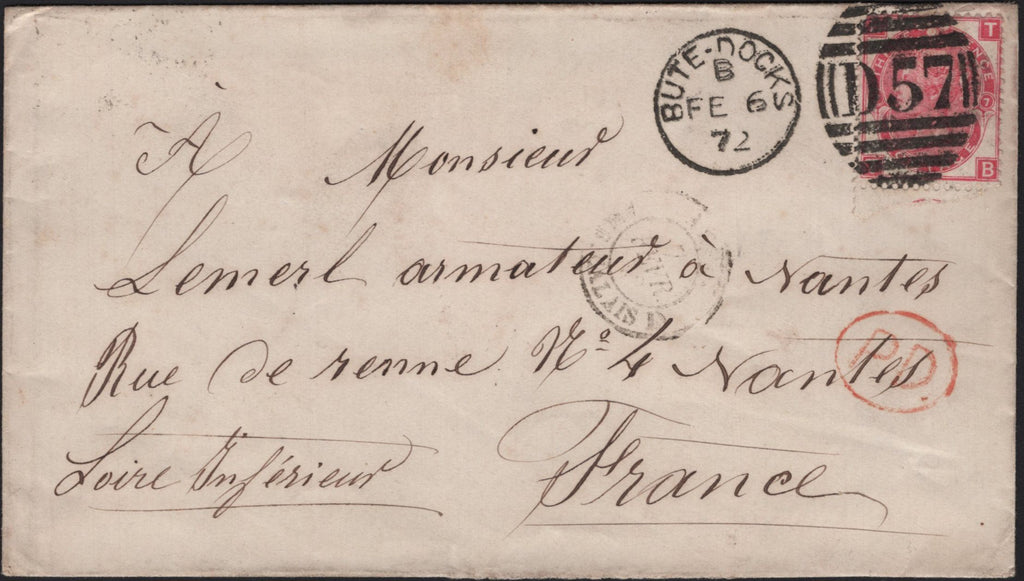 BUTE-DOCKS
B
FE 6
72
D57
T
7
B
A Monsieur
Lemerl armateur à Nantes
Rue de renne No 4 Nantes
Loire Inférieur
France
CALAIS
P.D.